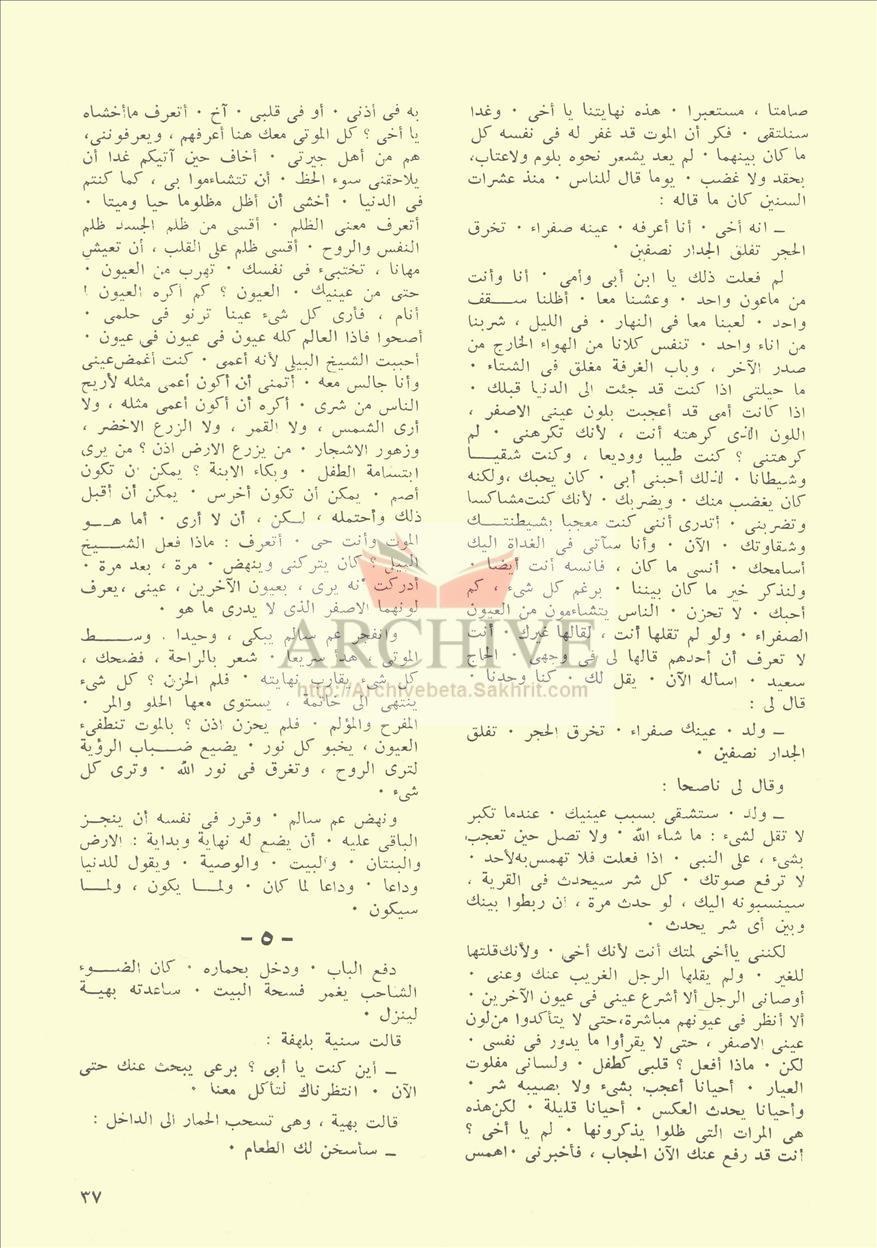 صامتا ، مستعبرا ٠ هذه نهايتنا يا أخى ٠ وغدا
سنلتقى ٠ فكر أن الموت قد غفر له فى نفسه كل
ما كان بينهما ٠ لم يعد يشعر نحوه بلوم ولاعتاب،
بحقد ولا غضب ٠ يوما قال للناس ٠ منذ عشرات
السنين كان ما قاله :
ــ انه أخى ٠ أنا أعرفه ٠ عينه صفراء ٠ تخرق
الحجر تفلق الجدار نصفين ٠
لم فعلت ذلك يا ابن أبى وأمى ٠ أنا وأنت
من ماعون واحد ٠ وعشنا معا ٠ أظلنا سـقف
واحد ٠ لعبنا معا فى النهار ٠ فى الليل ، شربنا
من اناء واحد ٠ تنفس كلانا من الهواء الخارج من
صدر الآخر ، وباب الغرفة مغلق فى الشتاء ٠
ما حيلتى اذا كنت قد جئت الى الدنيا قبلك ٠
اذا كانت أمى قد أعجبت بلون عينى الاصفر ،
اللون الذى كرهته أنت ، لأنك تكرهنى ٠ لم
كرهتنى ؟ كنت طيبا ووديعا ، وكنت شقيـا
وشيطانا ٠ لذلك أحبنى أبى ٠ كان يحبك ،ولكنه
كان يغضب منك ٠ ويضربك ٠ لأنك كنت مشاكسا
وتضربنى ٠ أتدرى أننى كنت معجبا بشيطنتـك
وشقاوتك ٠ الآن ٠ وأنا سآتى فى الغداة اليك
أسامحك ٠ أنسى ما كان ، فانسه أنت أيضا ٠
ولنذكر خير ما كان بيننا ٠ برغم كل شىء ، كم
أحبك ٠ لا تحزن ٠ الناس يتشاءمون من العيون
الصفراء ٠ ولو لم تقلها أنت ، لقالها غيرك ٠ أنت
لا تعرف أن أحدهم قالها لى فى وجهى ٠ الحاج
سعيد ٠ اسأله الآن ٠ يقل لك ٠ كنا وحدنا ٠
قال لى :
ــ ولد ٠ عينك صفراء ٠ تخرق الحجر ٠ تفلق
الجدار نصفين ٠
وقال لى ناصحا :
ــ ولد ٠ ستشقى بسبب عينيك ٠ عندما تكبر
لا تقل لشىء : ما شاء الله ٠ ولا تصل حين تعجب
بشىء ، على النبى ٠ اذا فعلت فلا تهمس به لأحد ٠
لا ترفع صوتك ٠ كل شر سيحدث فى القرية ،
سينسبونه اليك ، لو حدث مرة ، ان ربطوا بينك
وبين أى شر يحدث ٠
لكننى ياأخى لمتك أنت لأنك أخى ٠ ولأنك قلتها
للغير ٠ ولم يقلها الرجل الغريب عنك وعنى ٠
أوصانى الرجل ألا أشرع عينى فى عيون الآخرين ٠
ألا أنظر فى عيونهم مباشرة،حتى لا يتأكدوا من لون
عينى الاصفر ، حتى لا يقرأوا ما يدور فى نفسى ٠
لكن ٠ ماذا أفعل ؟ قلبى كطفل ٠ ولسانى مفلوت
العيار ٠ أحيانا أعجب بشىء ولا يصيبه شر ٠
وأحيانا يحدث العكس ٠ أحيانا قليلة ٠ لكن هذه
هى المرات التى ظلوا يذكرونها ٠ لم يا أخى ؟
أنت قد رفع عنك الآن الحجاب ، فأخبرنى ٠ اهمس
به فى أذنى ٠ أو فى قلبى ٠ آخ ٠ أتعرف ماأخشاه
يا أخى ؟ كل الموتى معك هنا أعرفهم ، ويعرفوننى،
هم من أهل جيرتى ٠ أخاف حين آتيكم غدا أن
يلاحقنى سوء الحظ ٠ أن تتشاءموا بى ، كما كنتم
فى الدنيا ٠ أخشى أن أظل مظلوما حيا وميتا ٠
أتعرف معنى الظلم ٠ أقسى من ظلم الجسد ظلم
النفس والروح ٠ أقسى ظلم على القلب ، أن تعيش
مهانا ، تختبىء فى نفسك ٠ تهرب من العيون ٠
حتى من عينيك ٠ العيون ؟ كم أكره العيون !
أنام ، فأرى كل شىء عينا ترنو فى حلمى ٠
أصحوا فاذا العالم كله عيون فى عيون فى عيون ٠
أحببت الشيخ البيلى لأنه أعمى ٠ كنت أغمض عينى
وأنا جالس معه ٠ أتمنى أن أكون أعمى مثله لأريح
الناس من شرى ٠ أكره أن أكون أعمى مثله ، ولا
أرى الشمس ، ولا القمر ، ولا الزرع الاخضر ،
وزهور الاشجار ٠ من يزرع الارض اذن ؟ من يرى
ابتسامة الطفل ٠ وبكاء الابنة ؟ يمكن أن تكون
أصم ٠ يمكن أن تكون أخرس ٠ يمكن أن أقبل
ذلك وأحتمله ، لـكن ، أن لا أرى ٠ أما هـو
الموت وأنت حى ٠ أتعرف : ماذا فعل الشـيخ
البيلى ؟ كان يتركنى وينهض ٠ مرة ، بعد مرة ٠
أدركت أنه يرى ، بعيون الآخرين ، عينى ،يعرف
لونهما الاصفر الذى لا يدرى ما هو ٠
وانفجر عم سالم يبكى ، وحيدا ٠ وسـط
الموتى ٠ هدأ سريعا ٠ شعر بالراحة ، فضحك ،
كل شىء يقارب نهايته ٠ فلم الحزن ؟ كل شىء
ينتهى الى خاتمة ، يستوى معها الحلو والمر ٠
المفرح والمؤلم ٠ فلم يحزن اذن ؟ بالموت تنطفىء
العيون ، يخبو كل نور ٠ يضيع ضـباب الرؤية
لترى الروح ، وتغرق فى نور الله ٠ وترى كل
شىء ٠
ونهض عم سالم ٠ وقرر فى نفسه أن ينجـز
الباقى عليه ٠ أن يضع له نهاية وبداية : الارض
والبنتان ٠ والبيت ٠ والوصية ٠ ويقول للدنيا
وداعا ٠ وداعا لما كان ٠ ولمـا يكون ، ولمـا
سيكون ٠
ــ ٥ ــ
دفع الباب ٠ ودخل بحماره ٠ كان الضـوء
الشاحب يغمر فسحة البيت ٠ ساعدته بهيـة
لينزل ٠
قالت سنية بلهفة :
ــ أين كنت يا أبى ؟ برعى يبحث عنك حتى
الآن ٠ انتظرناك لتأكل معنا ٠
قالت بهية ، وهى تسحب الحمار الى الداخل :
ــ سأسخن لك الطعام ٠
٣٧
ARCHIVE
http://Archivebeta.Sakhrit.com